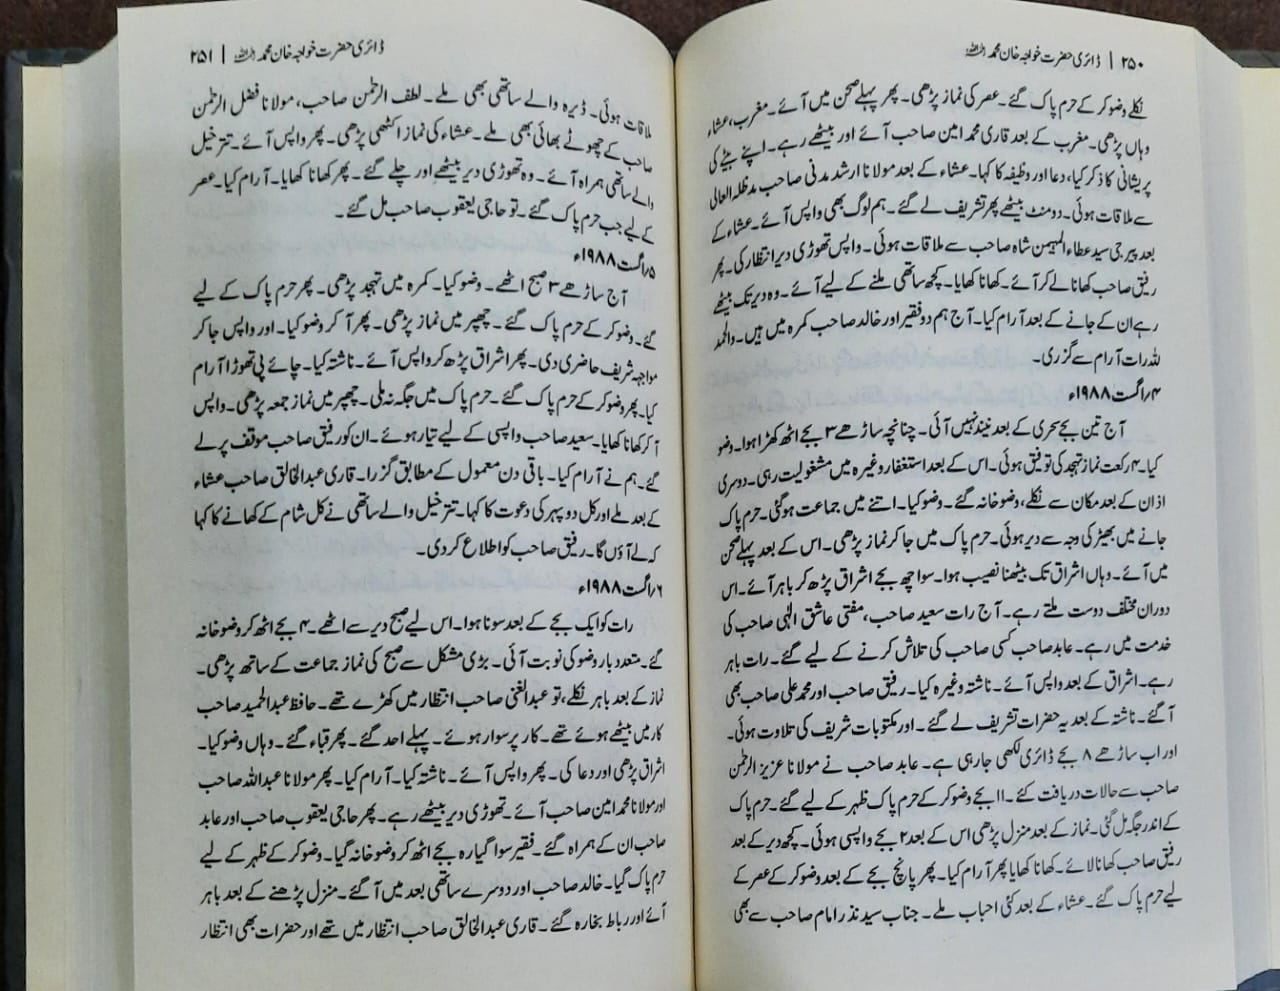 ۲۵۰ | ڈائری حضرت خواجہ خان محمد رحمہ اللہ
نکلے وضو کر کے حرم پاک گئے۔ عصر کی نماز پڑھی۔ پھر پہلے صحن میں آئے۔ مغرب، عشاء
وہاں پڑھی۔ مغرب کے بعد قاری محمد امین صاحب آئے اور بیٹھے رہے۔ اپنے بیٹے کی
پریشانی کا ذکر کیا، دعا اور وظیفہ کا کہا۔ عشاء کے بعد مولانا ارشد مدنی صاحب مدظلہ العالی
سے ملاقات ہوئی۔ دو منٹ بیٹھے پھر تشریف لے گئے۔ ہم لوگ بھی واپس آئے۔ عشاء کے
بعد پیر جی سید عطاء المہیمن شاہ صاحب سے ملاقات ہوئی۔ واپس تھوڑی دیر انتظار کی۔ پھر
رفیق صاحب کھانا لے کر آئے۔ کھانا کھایا۔ کچھ ساتھی ملنے کے لیے آئے۔ وہ دیر تک بیٹھے
رہے ان کے جانے کے بعد آرام کیا۔ آج ہم دو فقیر اور خالد صاحب کمرہ میں ہیں۔ والحمد
للہ رات آرام سے گزری۔
۴/اگست ۱۹۸۸ء
آج تین بجے سحری کے بعد نیند نہیں آئی۔ چنانچہ ساڑھے ۳ بجے اٹھ کھڑا ہوا۔ وضو
کیا۔ ۴ رکعت نماز تہجد کی توفیق ہوئی۔ اس کے بعد استغفار وغیرہ میں مشغولیت رہی۔ دوسری
اذان کے بعد مکان سے نکلے، وضو خانہ گئے۔ وضو کیا۔ اتنے میں جماعت ہو گئی۔ حرم پاک
جانے میں بھیڑ کی وجہ سے دیر ہوئی۔ حرم پاک میں جا کر نماز پڑھی۔ اس کے بعد پہلے صحن
میں آئے۔ وہاں اشراق تک بیٹھنا نصیب ہوا۔ سوا چھ بجے اشراق پڑھ کر باہر آئے۔ اس
دوران مختلف دوست ملتے رہے۔ آج رات سعید صاحب، مفتی عاشق الٰہی صاحب کی
خدمت میں رہے۔ عابد صاحب کسی صاحب کی تلاش کرنے کے لیے گئے۔ رات باہر
رہے۔ اشراق کے بعد واپس آئے۔ ناشتہ وغیرہ کیا۔ رفیق صاحب اور محمد علی صاحب بھی
آ گئے۔ ناشتہ کے بعد یہ حضرات تشریف لے گئے۔ اور مکتوبات شریف کی تلاوت ہوئی۔
اور اب ساڑھے ۸ بجے ڈائری لکھی جا رہی ہے۔ عابد صاحب نے مولانا عزیز الرحمٰن
صاحب سے حالات دریافت کئے۔ ۱۱ بجے وضو کر کے حرم پاک ظہر کے لیے گئے۔ حرم پاک
کے اندر جگہ مل گئی۔ نماز کے بعد منزل پڑھی اس کے بعد ۲ بجے واپسی ہوئی۔ کچھ دیر کے بعد
رفیق صاحب کھانا لائے۔ کھانا کھایا پھر آرام کیا۔ پھر پانچ بجے کے بعد وضو کر کے عصر کے
لیے حرم پاک گئے۔ عشاء کے بعد کئی احباب ملے۔ جناب سید نذر امام صاحب سے بھی
ڈائری حضرت خواجہ خان محمد رحمہ اللہ | ۲۵۱
ملاقات ہوئی۔ ڈیرہ والے ساتھی بھی ملے۔ لطف الرحمٰن صاحب، مولانا فضل الرحمٰن
صاحب کے چھوٹے بھائی بھی ملے۔ عشاء کی نماز اکٹھی پڑھی۔ پھر واپس آئے۔ تترخیل
والے ساتھی ہمراہ آئے۔ وہ تھوڑی دیر بیٹھے اور چلے گئے۔ پھر کھانا کھایا۔ آرام کیا۔ عصر
کے لیے جب حرم پاک گئے۔ تو حاجی یعقوب صاحب مل گئے۔
۵/اگست ۱۹۸۸ء
آج ساڑھے ۳ صبح اٹھے۔ وضو کیا۔ کمرہ میں تہجد پڑھی۔ پھر حرم پاک کے لیے
گئے۔ وضو کر کے حرم پاک گئے۔ چھپر میں نماز پڑھی۔ پھر آ کر وضو کیا۔ اور واپس جا کر
مواجہہ شریف حاضری دی۔ پھر اشراق پڑھ کر واپس آئے۔ ناشتہ کیا۔ چائے پی تھوڑا آرام
کیا۔ پھر وضو کر کے حرم پاک گئے۔ حرم پاک میں جگہ نہ ملی۔ چھپر میں نماز جمعہ پڑھی۔ واپس
آ کر کھانا کھایا۔ سعید صاحب واپسی کے لیے تیار ہوئے۔ ان کو رفیق صاحب موقف پر لے
گئے۔ ہم نے آرام کیا۔ باقی دن معمول کے مطابق گزرا۔ قاری عبدالخالق صاحب عشاء
کے بعد ملے اور کل دوپہر کی دعوت کا کہا۔ تترخیل والے ساتھی نے کل شام کے کھانے کا کہا
کہ لے آؤں گا۔ رفیق صاحب کو اطلاع کر دی۔
۶/اگست ۱۹۸۸ء
رات کو ایک بجے کے بعد سونا ہوا۔ اس لیے صبح دیر سے اٹھے۔ ۴ بجے اٹھ کر وضو خانہ
گئے۔ متعدد بار وضو کی نوبت آئی۔ بڑی مشکل سے صبح کی نماز جماعت کے ساتھ پڑھی۔
نماز کے بعد باہر نکلے، تو عبدالغنی صاحب انتظار میں کھڑے تھے۔ حافظ عبدالحمید صاحب
کار میں بیٹھے ہوئے تھے۔ کار پر سوار ہوئے۔ پہلے احد گئے۔ پھر قباء گئے۔ وہاں وضو کیا۔
اشراق پڑھی اور دعا کی۔ پھر واپس آئے۔ ناشتہ کیا۔ آرام کیا۔ پھر مولانا عبداللہ صاحب
اور مولانا محمد امین صاحب آئے۔ تھوڑی دیر بیٹھے رہے۔ پھر حاجی یعقوب صاحب اور عابد
صاحب ان کے ہمراہ گئے۔ فقیر سوا گیارہ بجے اٹھ کر وضو خانہ گیا۔ وضو کر کے ظہر کے لیے
حرم پاک گیا۔ خالد صاحب اور دوسرے ساتھی بعد میں آ گئے۔ منزل پڑھنے کے بعد باہر
آئے اور رباط بخارہ گئے۔ قاری عبدالخالق صاحب انتظار میں تھے اور حضرات بھی انتظار